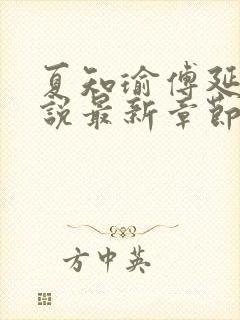 夏知瑜傅延
說最新章節
方中英